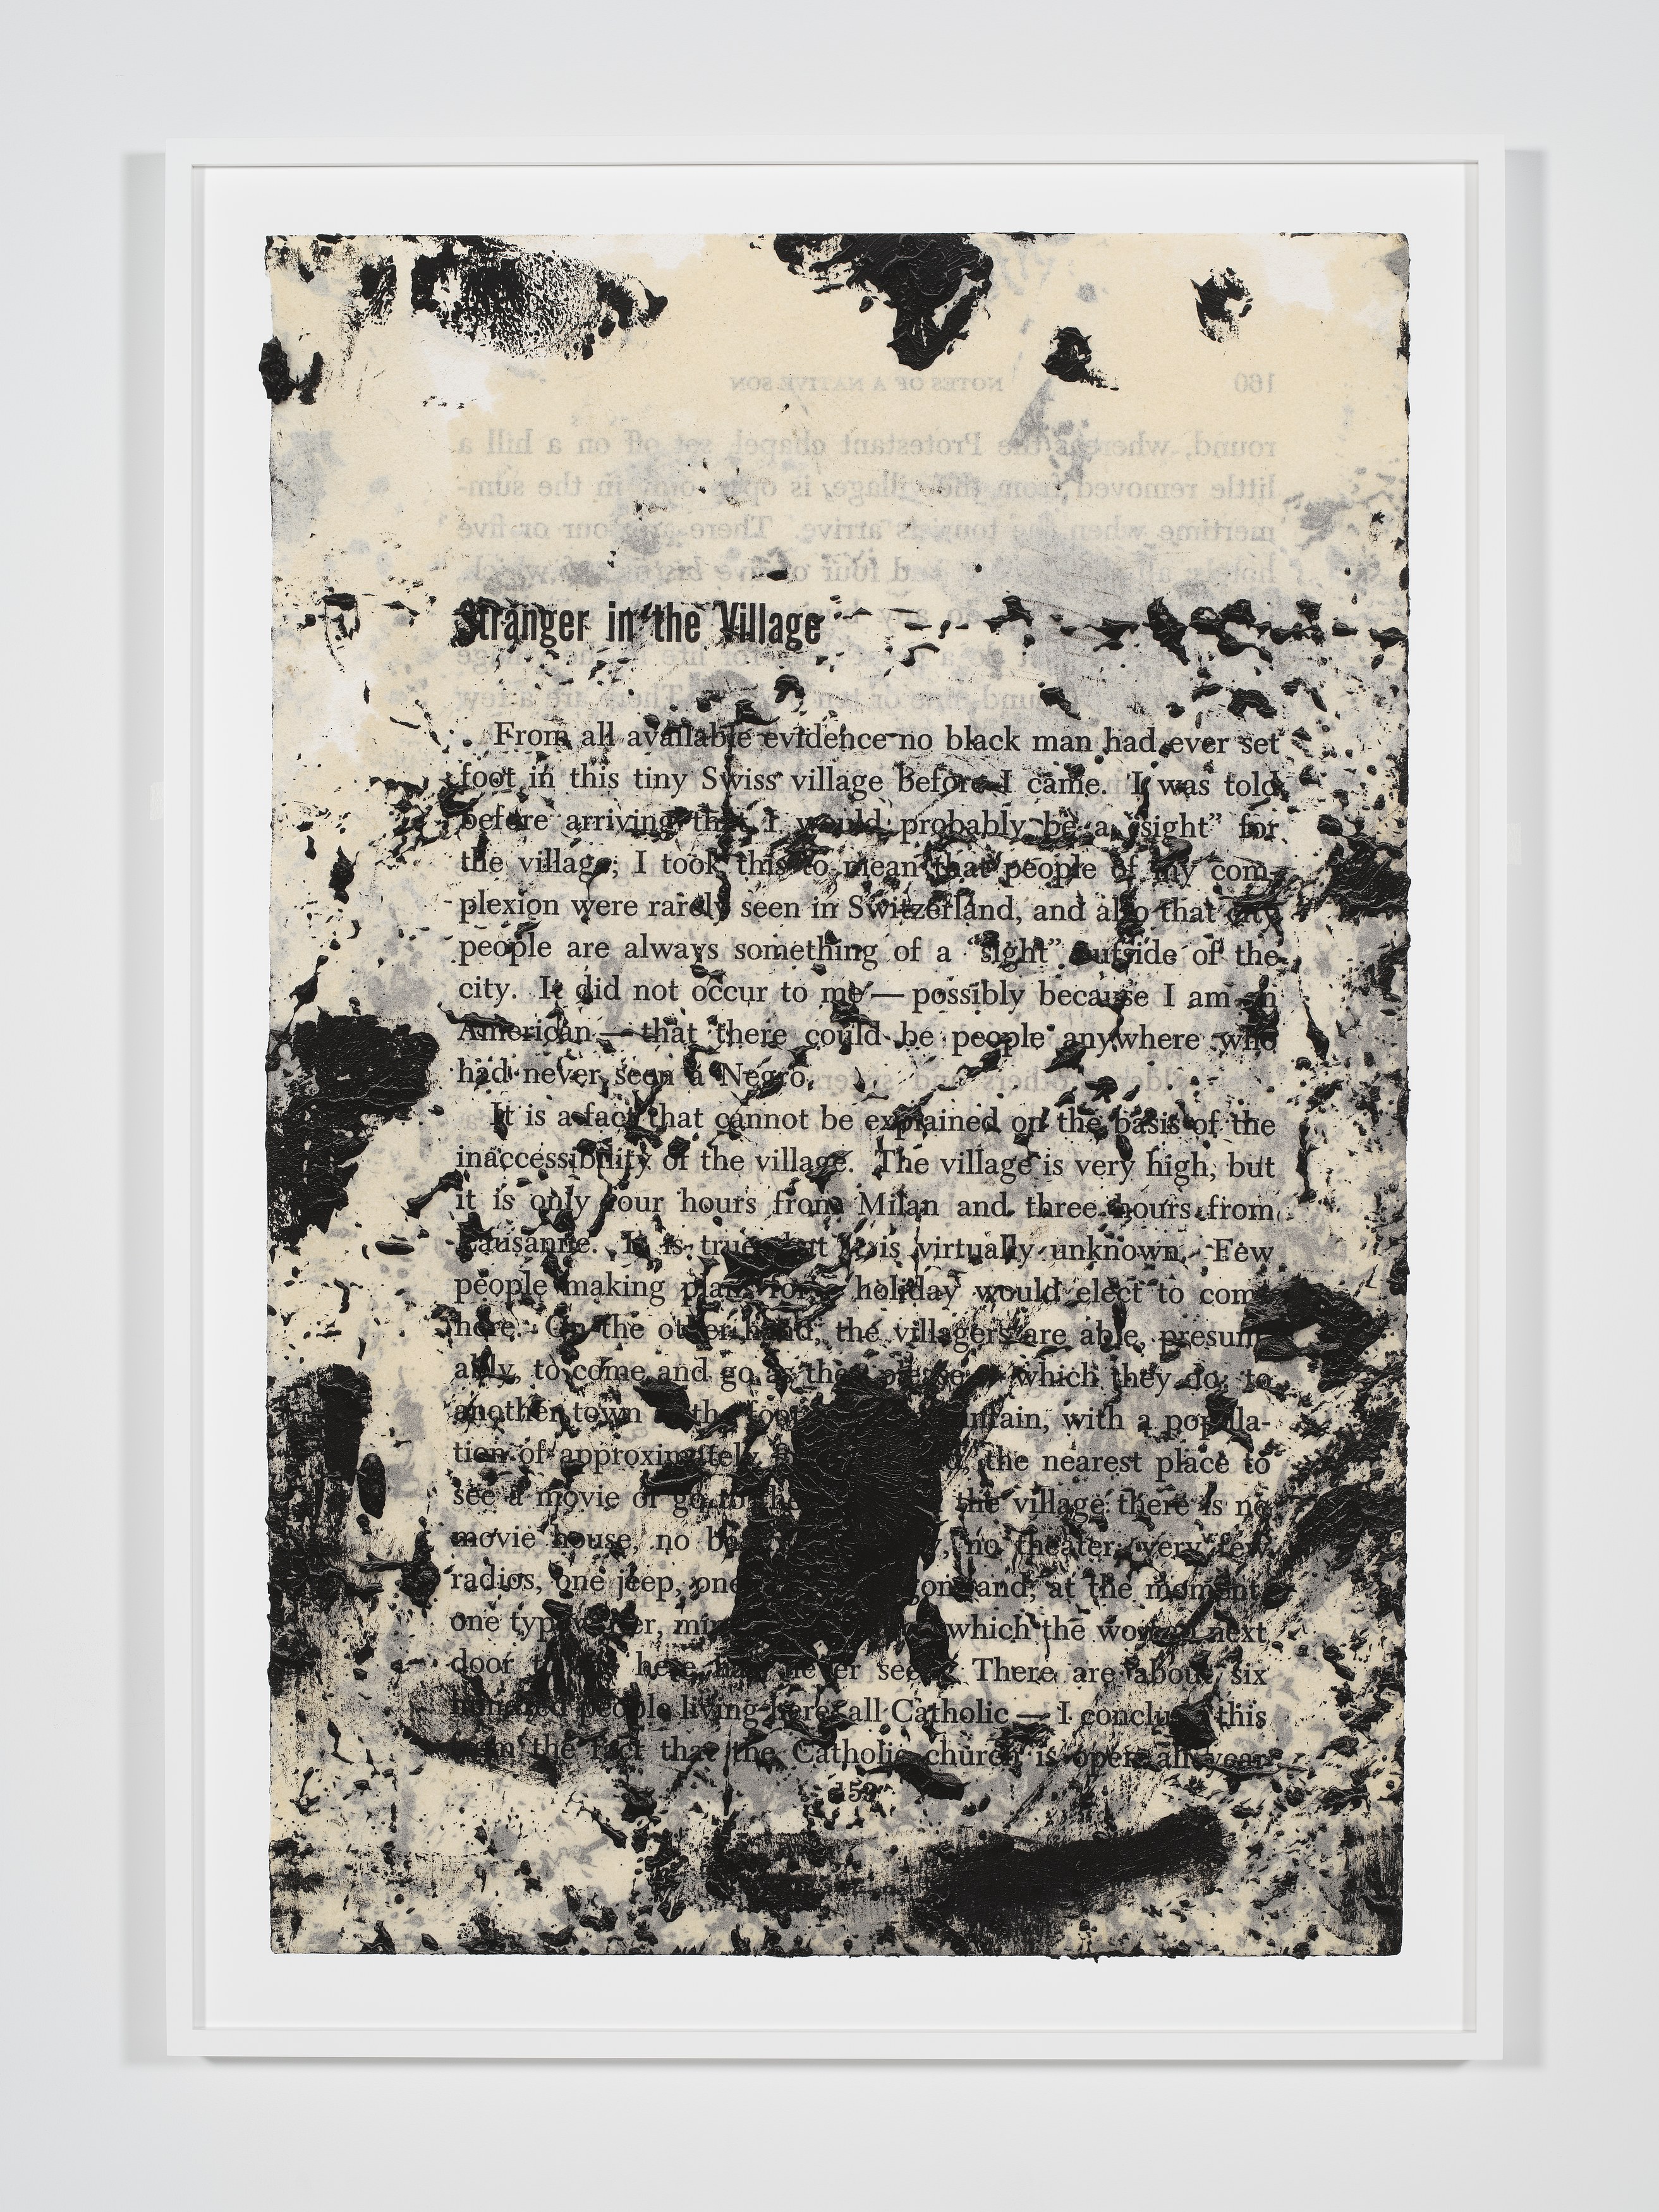 NOTES OF A NATIVE SON 160
round, whereas the Protestant chapel, set off on a hill a
little removed from the village, is open only in the sum-
mertime when the tourists arrive. There are four or five
hotels, all four or five bistros, of which,
Stranger in the Village
life in the village
There are a few
From all available evidence no black man had ever set
foot in this tiny Swiss village before I came. I was told
before arriving that I would probably be a “sight” for
the village; I took this to mean that people of my com-
plexion were rarely seen in Switzerland, and also that city
people are always something of a “sight” outside of the
city. It did not occur to me — possibly because I am an
American — that there could be people anywhere who
had never seen a Negro.
It is a fact that cannot be explained on the basis of the
inaccessibility of the village. The village is very high, but
it is only four hours from Milan and three hours from
Lausanne. It is true that it is virtually unknown. Few
people making plans for a holiday would elect to come
here. On the other hand, the villagers are able, presum-
ably, to come and go as they please — which they do: to
another town at the foot mountain, with a popula-
tion of approximately the nearest place to
see a movie or go to the the village there is no
movie house, no no theater; very few
radios, one jeep, one and, at the moment,
one typewriter, mine, which the woman next
door to me here had never seen. There are about six
hundred people living here, all Catholic — I conclude this
from the fact that the Catholic church is open all year
159